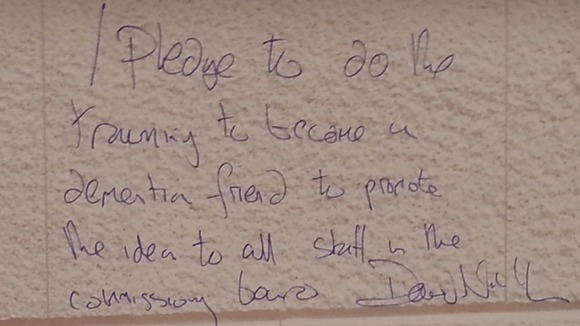 I Pledge to do the
training to become a
dementia friend to promote
the idea to all staff in the
commissiong board